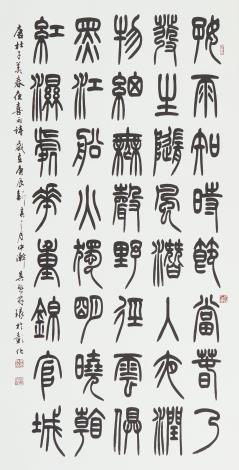 好雨知時節當春乃
發生隨風潛入夜潤
物細無聲野徑雲俱
黑江船火獨明曉看
紅濕處花重錦官城
唐杜子美春夜喜雨詩 歲在庚辰 月中澣吳 於彰化